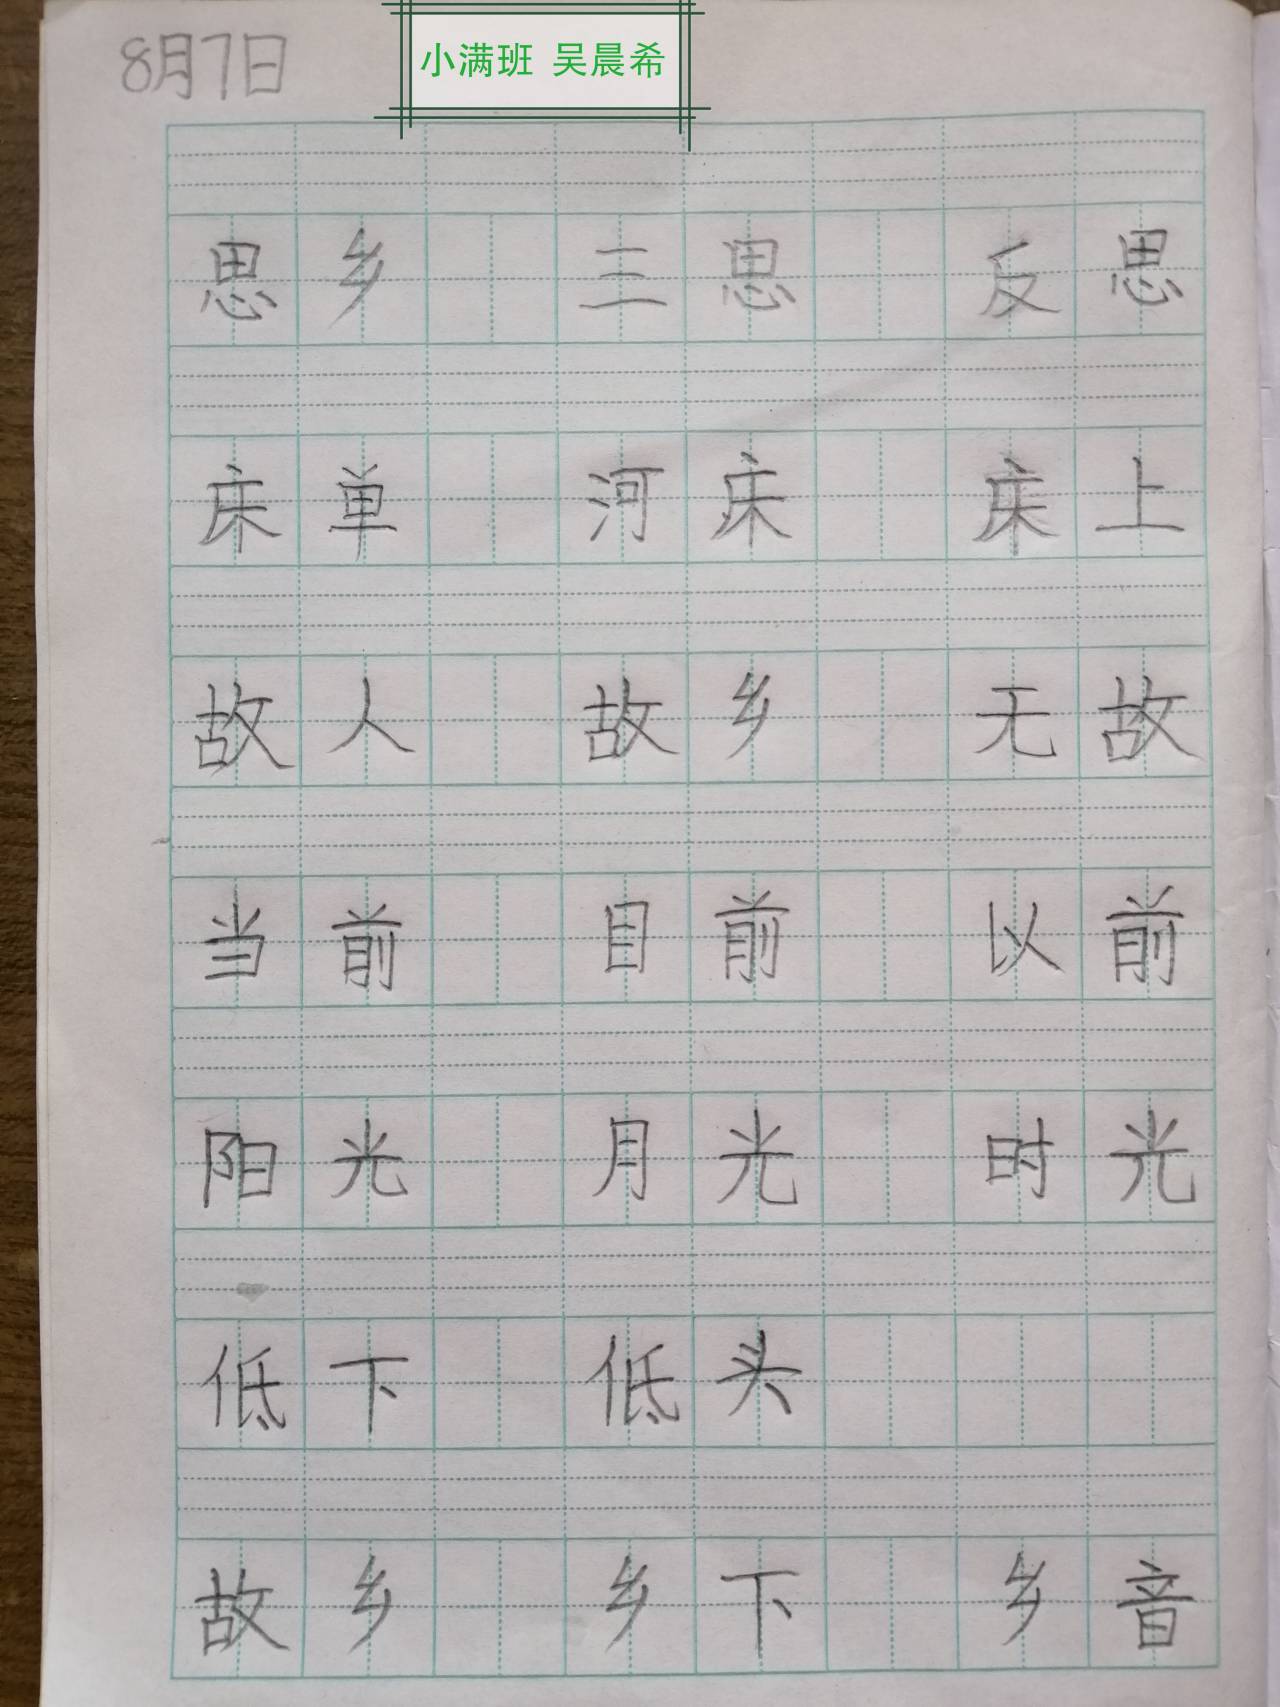 8月7日
小满班 吴晨希
思乡 三思 反思
床单 河床 床上
故人 故乡 无故
当前 目前 以前
阳光 月光 时光
低下 低头
故乡 乡下 乡音